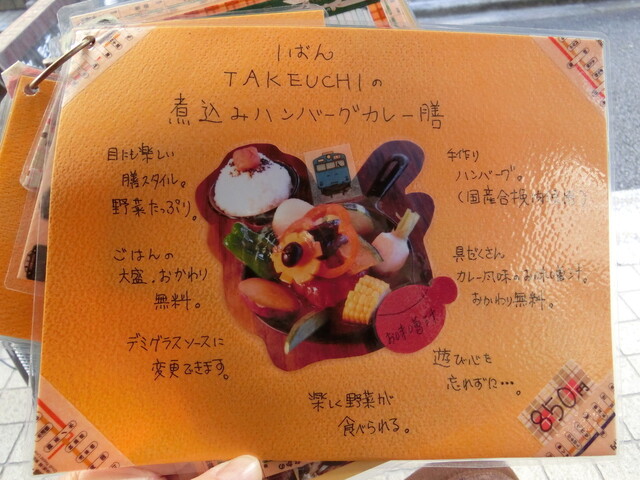 1ぱん
TAKEUCHIの
煮込みハンバーグカレー膳
目にも楽しい
膳スタイル。
野菜たっぷり。
ごはんの
大盛、おかわり
無料。
デミグラスソースに
変更できます。
楽しく野菜が
食べられる。
手作り
ハンバーグ。
(国産合挽
具だくさん
カレー風味のお味噌汁。
おかわり無料。
お味噌汁
遊び心を
忘れずに…。
850円